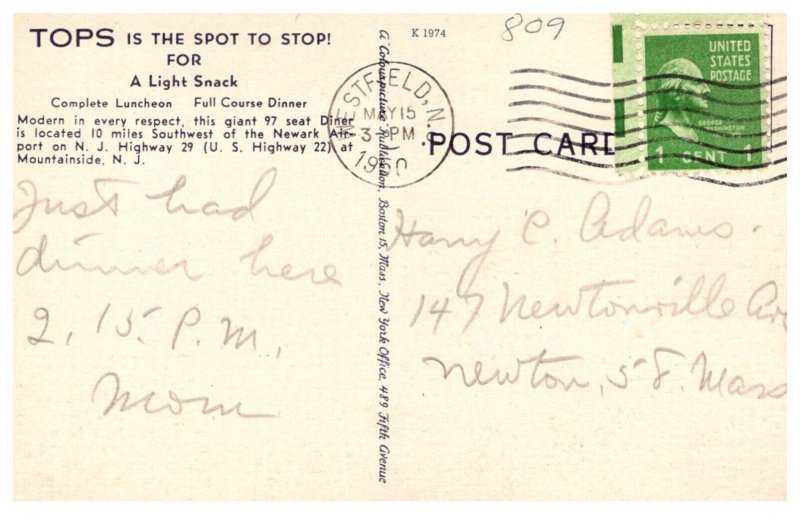 TOPS IS THE SPOT TO STOP!
FOR
A Light Snack
Complete Luncheon Full Course Dinner
Modern in every respect, this giant 97 seat Diner
is located 10 miles Southwest of the Newark Air-
port on N. J. Highway 29 (U. S. Highway 22) at
Mountainside, N. J.
Just had
dinner here
2, 15. P. M,
Mom
A Colourpicture Publication, Boston 15, Mass., New York Office, 489 Fifth Avenue
K 1974
809
WESTFIELD, N.J.
MAY 15
PM
POST CARD
UNITED
STATES
POSTAGE
GEORGE
WASHINGTON
1 CENT 1
Harry C. Adams.
147 Newtonville Av
Newton, 58. Mass